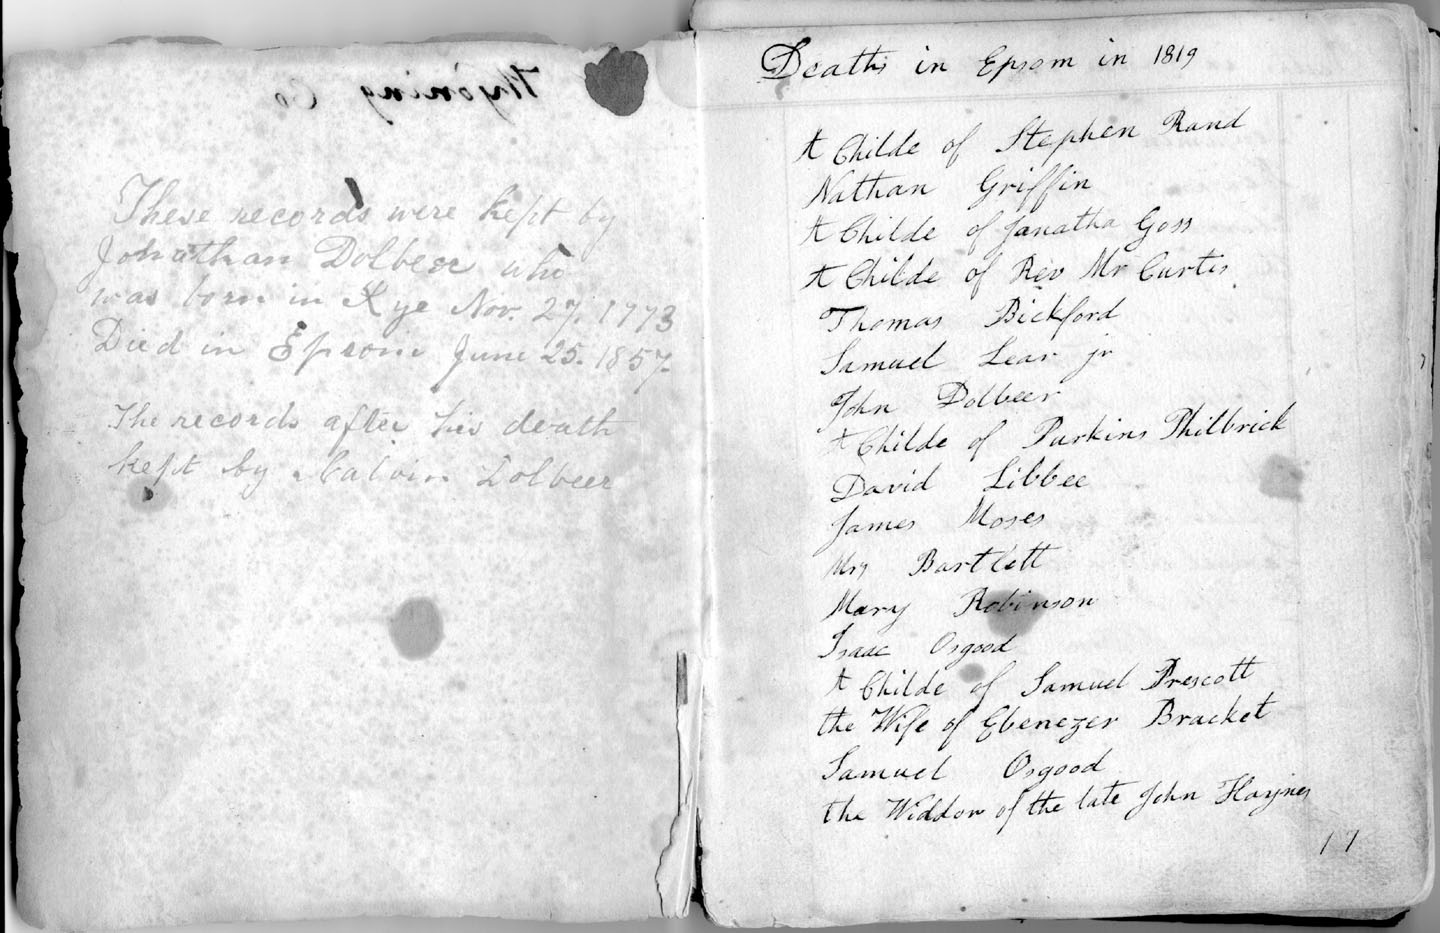 Wyoming Co
These records were kept by
Jonathan Dolbeer who
was born in Rye Nov. 27. 1773
Died in Epsom June 25. 1857.
The records after his death
kept by Calvin Dolbeer
Deaths in Epsom in 1819
A Childe of Stephen Rand
Nathan Griffin
A Childe of Janatha Goss
A Childe of Rev Mr Curtis
Thomas Bickford
Samuel Lear jr
John Dolbeer
A Childe of Purkins Philbrick
David Libbee
James Moses
Mrs Bartlett
Mary Robinson
Isaac Osgood
A Childe of Samuel Prescott
the Wife of Ebenezer Bracket
Samuel Osgood
the Widdow of the late John Haynes
17